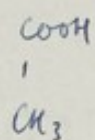 COOH
|
CH₃